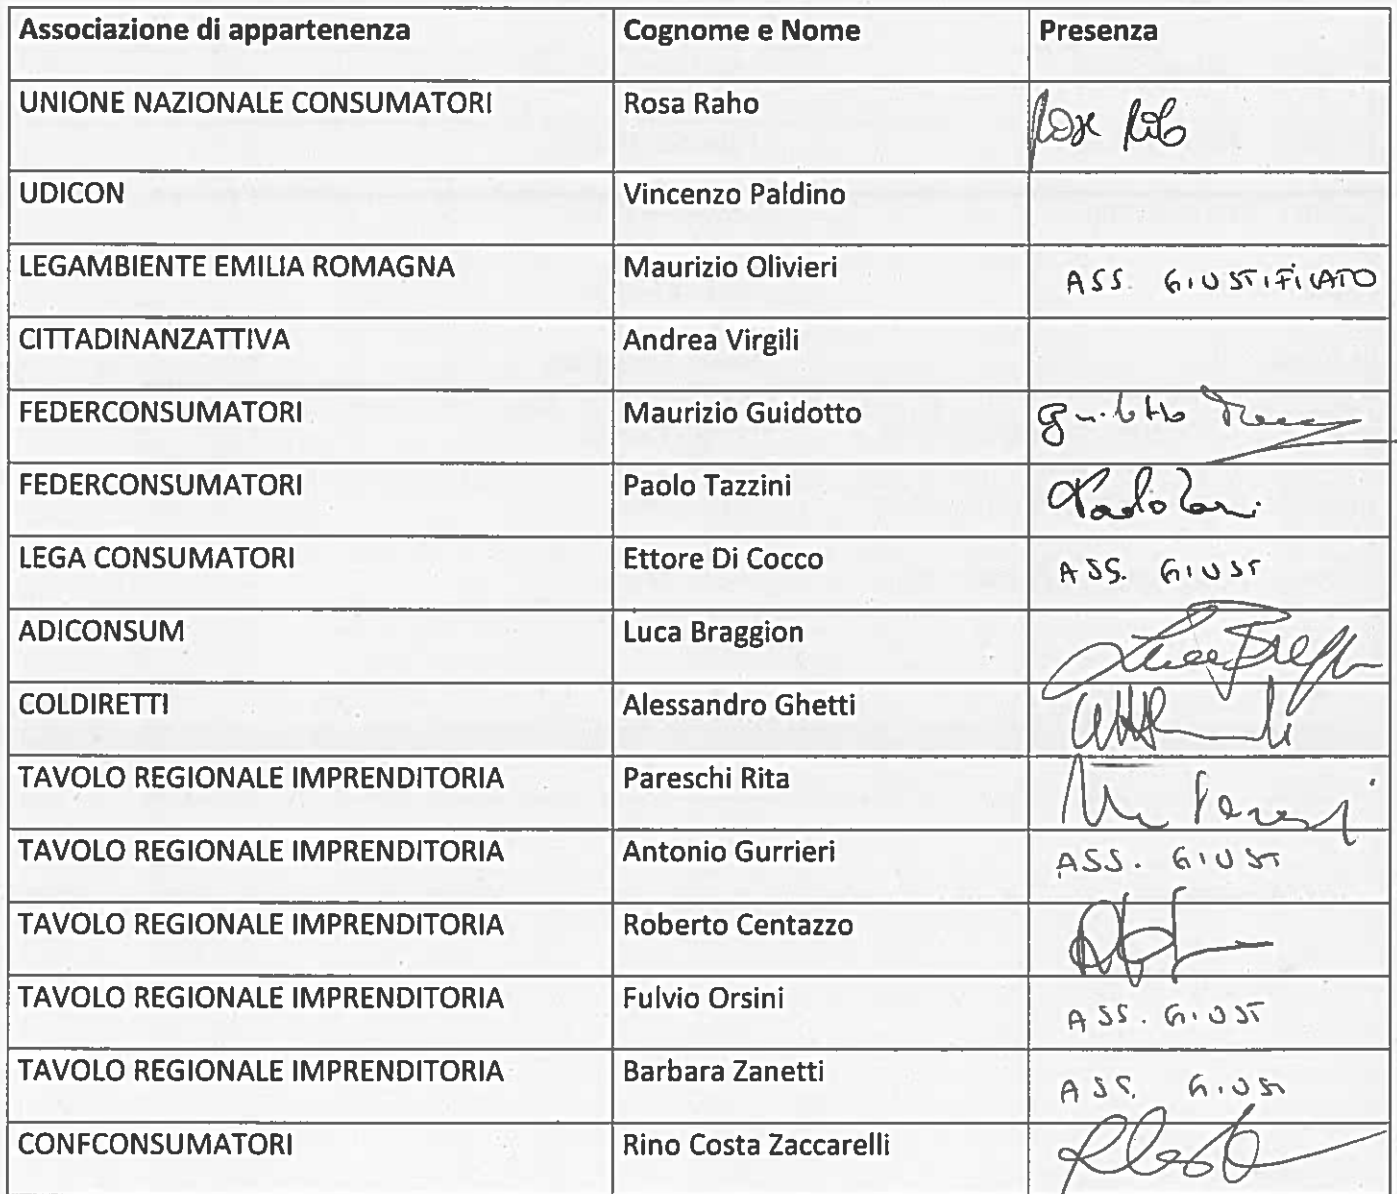 Associazione di appartenenza Cognome e Nome Presenza
UNIONE NAZIONALE CONSUMATORI Rosa Raho
UDICON Vincenzo Paldino
LEGAMBIENTE EMILIA ROMAGNA Maurizio Olivieri ASS. GIUSTIFICATO
CITTADINANZATTIVA Andrea Virgili
FEDERCONSUMATORI Maurizio Guidotto
FEDERCONSUMATORI Paolo Tazzini
LEGA CONSUMATORI Ettore Di Cocco ASS. GIUST
ADICONSUM Luca Braggion
COLDIRETTI Alessandro Ghetti
TAVOLO REGIONALE IMPRENDITORIA Pareschi Rita
TAVOLO REGIONALE IMPRENDITORIA Antonio Gurrieri ASS. GIUST
TAVOLO REGIONALE IMPRENDITORIA Roberto Centazzo
TAVOLO REGIONALE IMPRENDITORIA Fulvio Orsini ASS. GIUST
TAVOLO REGIONALE IMPRENDITORIA Barbara Zanetti ASS. GIUST
CONFCONSUMATORI Rino Costa Zaccarelli